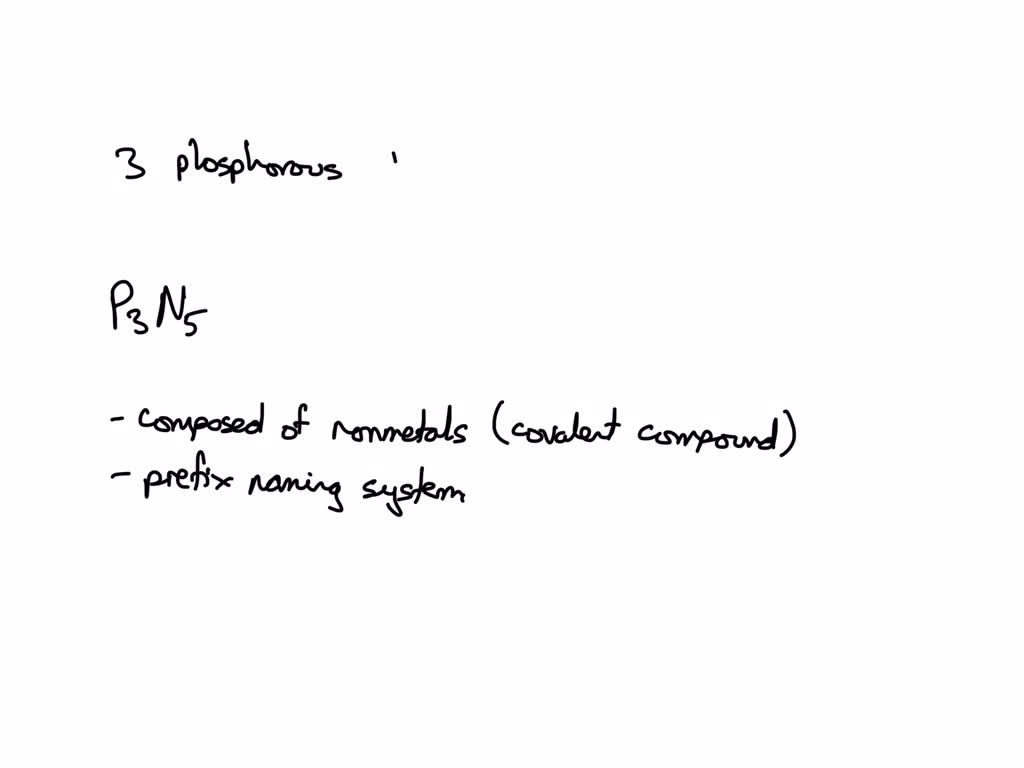 3 phosphorous '
P₃N₅
- composed of nonmetals (covalent compound)
- prefix naming system